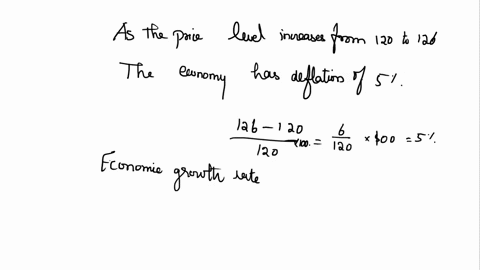 As the price level increases from 120 to 126
The economy has deflation of 5%.
126 - 120 / 120 × 100 = 6 / 120 × 100 = 5%.
Economic growth rate